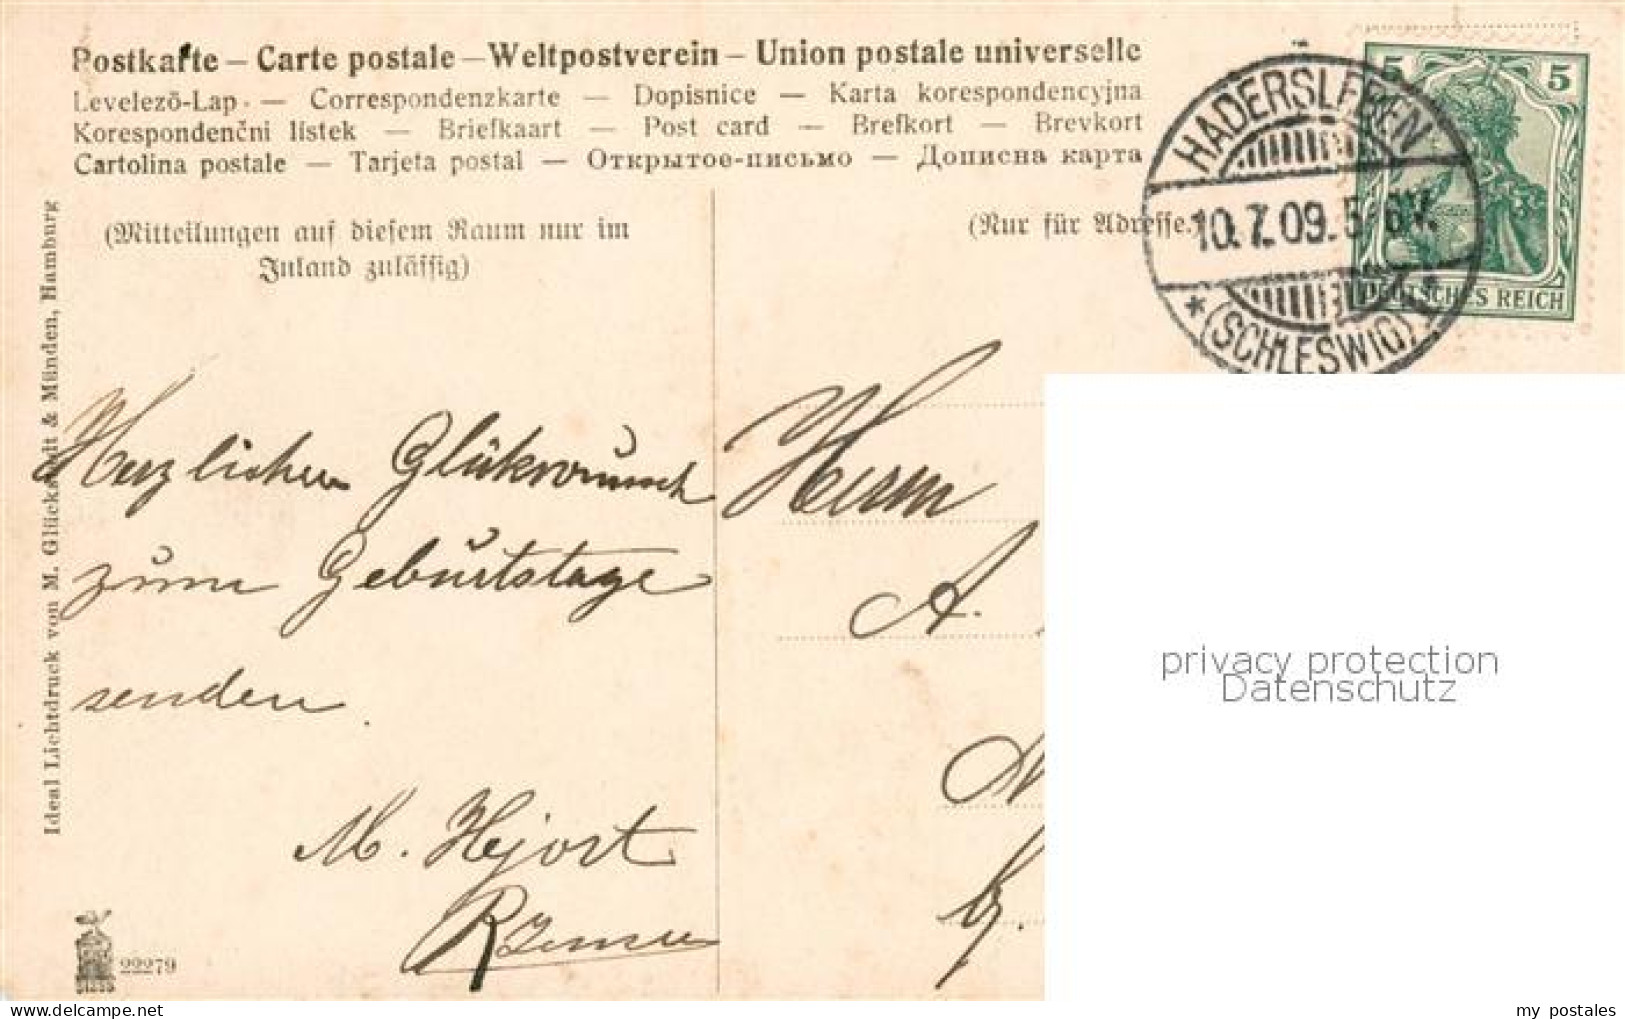 Postkarte – Carte postale – Weltpostverein – Union postale universelle
Levelező-Lap – Correspondenzkarte – Dopisnice – Karta korespondencyjna
Korespondenčni listek – Briefkaart – Post card – Brefkort – Brevkort
Cartolina postale – Tarjeta postal – Открытое-письмо – Дописна карта
(Mitteilungen auf diesem Raum nur im
Inland zulässig)
(Nur für Adresse.)
HADERSLEBEN
10.7.09. 5-6V.
* (SCHLESWIG)
5 5
DEUTSCHES REICH
Ideal Lichtdruck von M. Glückstadt & Münden, Hamburg
Herzlichen Glückwunsch
zum Geburtstage
senden.
M. Hjort
R Jensen
Herrn
A.
22279
privacy protection
Datenschutz
my postales